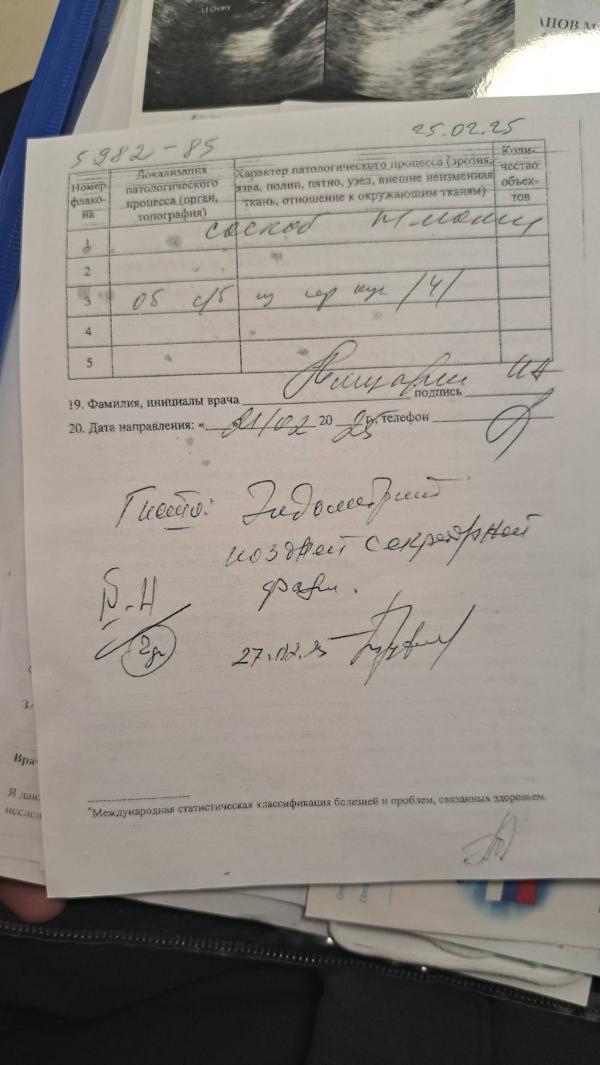 Lt Ovary
5982-85
25.02.25
Номер флако- на
Локализация патологического процесса (орган, топография)
Характер патологического процесса (эрозия, язва, полип, пятно, узел, внешне неизменная ткань, отношение к окружающим тканям)
Коли- чество объек- тов
1 соскоб
2
3 об с/б из /4/
4
5
19. Фамилия, инициалы врача подпись
20. Дата направления: « 21/02 20 25 г, телефон
Гисто: Эндометрий
поздней секреторной
фазы.
27.02.25
Вра
*Международная статистическая классификация болезней и проблем, связанных здоровьем.